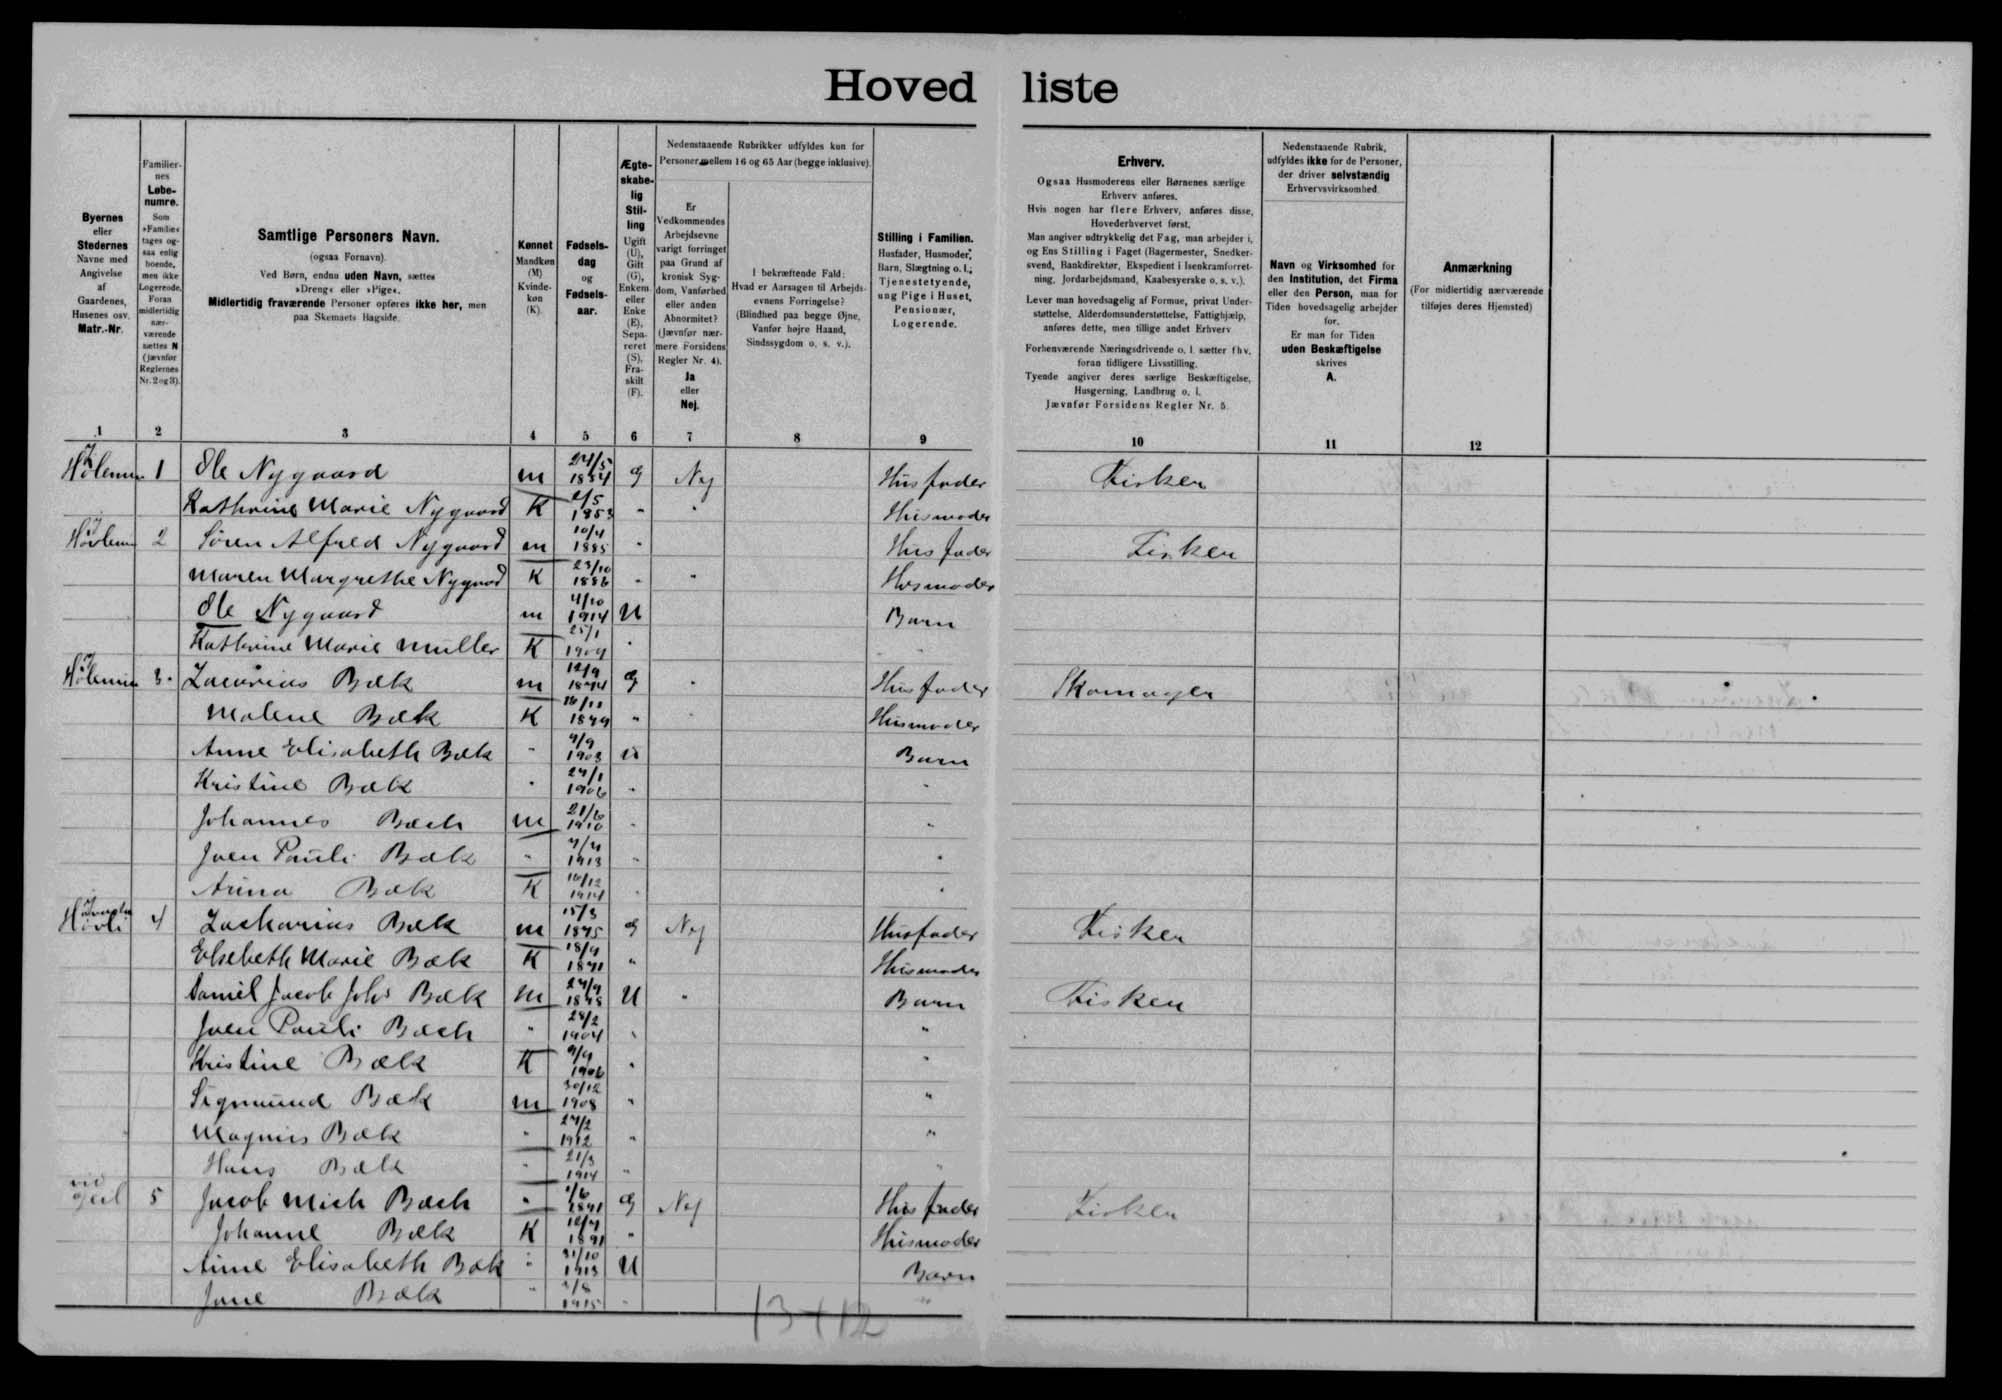 Hovedliste
Byernes
eller
Stedernes
Navne med
Angivelse
af
Gaardenes,
Husenes osv.
Matr.-Nr.
Familier-
nes
Løbe-
numre.
Som
»Familie«
tages og-
saa enlig
boende,
men ikke
Logerende.
Foran
midlertidig
nær-
værende
sættes N
(jævnfør
Reglernes
Nr. 2 og 3).
Samtlige Personers Navn.
(ogsaa Fornavn).
Ved Børn, endnu uden Navn, sættes
»Dreng« eller »Pige«.
Midlertidig fraværende Personer opføres ikke her, men
paa Skemaets Bagside.
Kønnet
Mandkøn
(M)
Kvinde-
køn
(K).
Fødsels-
dag
og
Fødsels-
aar.
Ægte-
skabe-
lig
Stil-
ling
Ugift
(U),
Gift
(G),
Enkem.
eller
Enke
(E),
Sepa-
reret
(S),
Fra-
skilt
(F).
Nedenstaaende Rubrikker udfyldes kun for
Personer mellem 16 og 65 Aar (begge inklusive).
Er
Vedkommendes
Arbejdsevne
varigt forringet
paa Grund af
kronisk Syg-
dom, Vanførhed
eller anden
Abnormitet?
(Jævnfør nær-
mere Forsidens
Regler Nr. 4).
Ja
eller
Nej.
I bekræftende Fald:
Hvad er Aarsagen til Arbejds-
evnens Forringelse?
(Blindhed paa begge Øjne,
Vanfør højre Haand,
Sindssygdom o. s. v.).
Stilling i Familien.
Husfader, Husmoder,
Barn, Slægtning o. l.,
Tjenestetyende,
ung Pige i Huset,
Pensionær,
Logerende.
Erhverv.
Ogsaa Husmoderens eller Børnenes særlige
Erhverv anføres.
Hvis nogen har flere Erhverv, anføres disse,
Hovederhvervet først.
Man angiver udtrykkelig det Fag, man arbejder i,
og Ens Stilling i Faget (Bagermester, Snedker-
svend, Bankdirektør, Ekspedient i Isenkramforret-
ning, Jordarbejdsmand, Kaabesyerske o. s. v.).
Lever man hovedsagelig af Formue, privat Under-
støttelse, Alderdomsunderstøttelse, Fattighjælp,
anføres dette, men tillige andet Erhverv
Forhenværende Næringsdrivende o. l. sætter fhv.
foran tidligere Livsstilling.
Tyende angiver deres særlige Beskæftigelse,
Husgerning, Landbrug o. l.
Jævnfør Forsidens Regler Nr. 5.
Nedenstaaende Rubrik,
udfyldes ikke for de Personer,
der driver selvstændig
Erhvervsvirksomhed.
Navn og Virksomhed for
den Institution, det Firma
eller den Person, man for
Tiden hovedsagelig arbejder
for.
Er man for Tiden
uden Beskæftigelse
skrives
A.
Anmærkning
(For midlertidig nærværende
tilføjes deres Hjemsted)
1 2 3 4 5 6 7 8 9 10 11 12
1 Ole Nygaard m 24/5 1854 G Nej Husfader Fisker
Kathrine Marie Nygaard K 1853 " " Husmoder
2 Søren Alfred Nygaard m 10/4 1885 " Husfader Fisker
Maren Margrethe Nygaard K 23/10 1886 " " Husmoder
Ole Nygaard m 4/10 1914 U Barn
Kathrine Marie Müller K 25/1 1909 " "
3 Zacarias Bæk m 12/9 1874 G " Husfader Skomager
Malene Bæk K 1879 " " Husmoder
Anne Elisabeth Bæk " 9/9 1903 U Barn
Kristine Bæk " 1906 " "
Johannes Bæch m 21/6 1910 " "
Joen Pauli Bæk " 1913 " "
Anna Bæk K 16/12 1914 " "
4 Zacharias Bæk m 15/3 1875 G Nej Husfader Fisker
Elsebeth Marie Bæk K 1871 " Husmoder
Daniel Jacob Johs Bæk m 1898 U " Barn Fisker
Joen Pauli Bæch " 28/2 1904 " "
Kristine Bæk K 9/9 1906 " "
Sigmund Bæk m 30/12 1908 " "
Magnus Bæk " 24/2 1912 " "
Hans Bæk " 21/3 1914 " "
5 Jacob Mich Bæch " G Nej Husfader Fisker
Johanne Bæk K 1891 " Husmoder
Anne Elisabeth Bæk " 31/10 1913 U Barn
Jane Bæk " 1915 " "
13+12